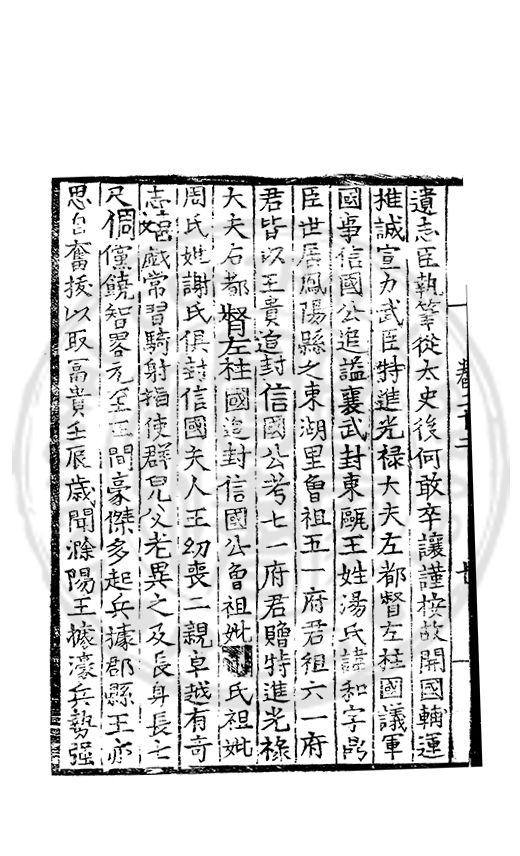 遺志臣執筆從太史後何敢卒讓謹按故開國輔運
推誠宣力武臣特進光禄大夫左都督左柱國議軍
國事信國公追謚襄武封東甌王姓湯氏諱和字鼎
臣世居鳳陽縣之東湖里曾祖五一府君祖六一府
君皆以王貴追封信國公考七一府君贈特進光祿
大夫右都督左柱國追封信國公曾祖妣氏祖妣
周氏妣謝氏俱封信國夫人王幼喪二親卓越有奇
志嬉戲常習騎射指使群兒父老異之及長身長七
尺倜儻饒智畧元至正間豪傑多起兵據郡縣王亦
思自奮拔以取冨貴壬辰歳聞滁陽王據濠兵勢强
卷二十二